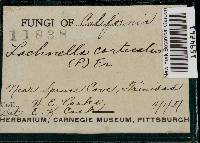 FUNGI OF California
11838
Lachnella corticalis
(P) Fr
Near Spruce Cove, Trinidad
Coll. H. E. Parks
Det. E. K. Cash
HERBARIUM, CARNEGIE MUSEUM, PITTSBURGH